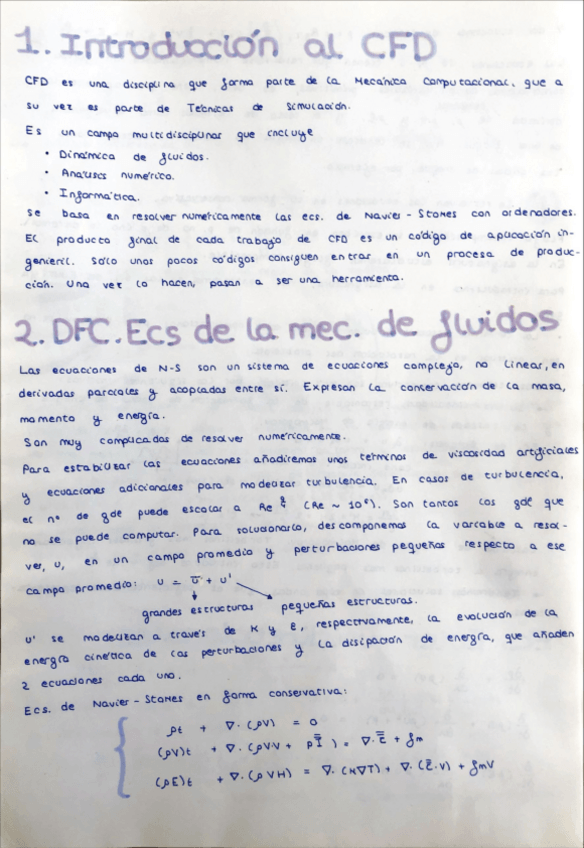 1. Introducción al CFD
CFD es una disciplina que forma parte de la Mecánica Computacional, que a
su vez es parte de Técnicas de Simulación.
Es un campo multidisciplinar que incluye
• Dinámica de fluidos.
• Análisis numérico.
• Informática.
Se basa en resolver numéricamente las ecs. de Navier-Stokes con ordenadores.
El producto final de cada trabajo de CFD es un código de aplicación in-
genieril. Sólo unos pocos códigos consiguen entrar en un proceso de produc-
ción. Una vez lo hacen, pasan a ser una herramienta.
2. DFC. Ecs de la mec. de fluidos
Las ecuaciones de N-S son un sistema de ecuaciones complejo, no lineal, en
derivadas parciales y acopladas entre sí. Expresan la conservación de la masa,
momento y energía.
Son muy complicadas de resolver numéricamente.
Para estabilizar las ecuaciones añadiremos unos términos de viscosidad artificiales
y ecuaciones adicionales para modelizar turbulencia. En casos de turbulencia,
el nº de gdl puede escalar a Re (Re ~ 10⁶). Son tantos los gdl que
no se puede computar. Para solucionarlo, descomponemos la variable a resol-
ver, u, en un campo promedio y perturbaciones pequeñas respecto a ese
campo promedio: u = ū + u'
grandes estructuras pequeñas estructuras.
u' se modelizan a través de K y ε, respectivamente, la evolución de la
energía cinética de las perturbaciones y la disipación de energía, que añaden
2 ecuaciones cada uno.
Ecs. de Navier-Stokes en forma conservativa:
ρt + ∇·(ρV) = 0
(ρV)t + ∇·(ρVV + pI̿) = ∇·τ̿ + fm
(ρE)t + ∇·(ρVH) = ∇·(K∇T) + ∇·(τ̿·V) + fmV